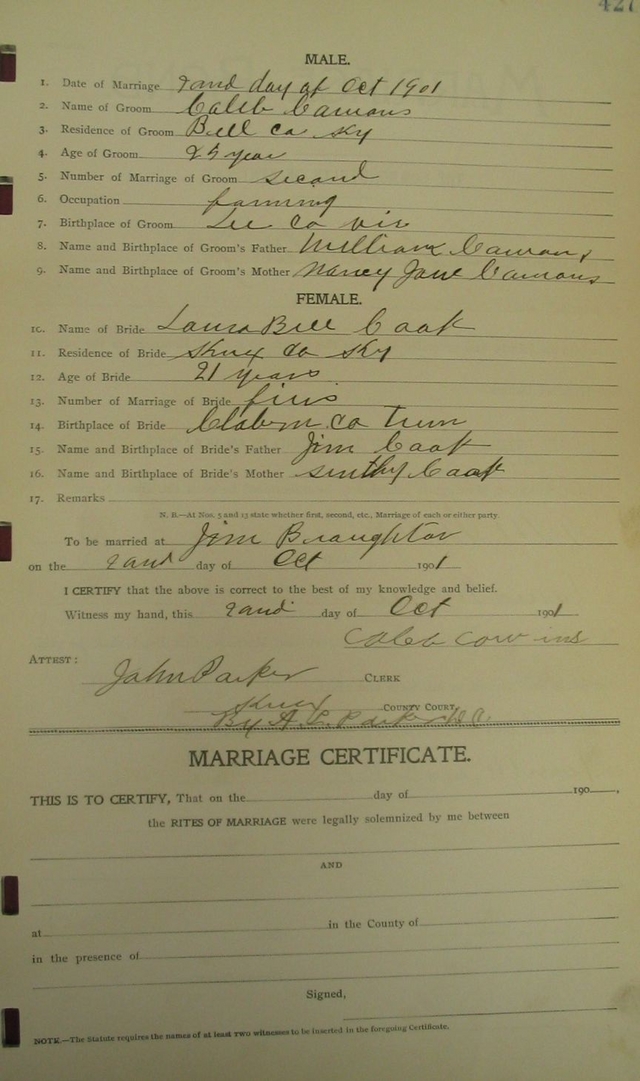 427
MALE.
1. Date of Marriage 2and day of Oct 1901
2. Name of Groom Caleb
3. Residence of Groom Bell co Ky
4. Age of Groom 25 year
5. Number of Marriage of Groom second
6. Occupation farming
7. Birthplace of Groom Lee co vir
8. Name and Birthplace of Groom's Father William
9. Name and Birthplace of Groom's Mother Nancy Jane
FEMALE.
10. Name of Bride Laura Bell Cook
11. Residence of Bride Knox co Ky
12. Age of Bride 21 years
13. Number of Marriage of Bride firs
14. Birthplace of Bride co
15. Name and Birthplace of Bride's Father Jim Cook
16. Name and Birthplace of Bride's Mother Cook
17. Remarks
N. B.—At Nos. 5 and 13 state whether first, second, etc., Marriage of each or either party.
To be married at Jim
on the 2and day of Oct 1901
I CERTIFY that the above is correct to the best of my knowledge and belief.
Witness my hand, this 2and day of Oct 1901
Caleb
ATTEST:
John Parker CLERK
Knox COUNTY COURT,
By Parker
MARRIAGE CERTIFICATE.
THIS IS TO CERTIFY, That on the day of 190 ,
the RITES OF MARRIAGE were legally solemnized by me between
AND
at in the County of
in the presence of
Signed,
NOTE.—The Statute requires the names of at least two witnesses to be inserted in the foregoing Certificate.